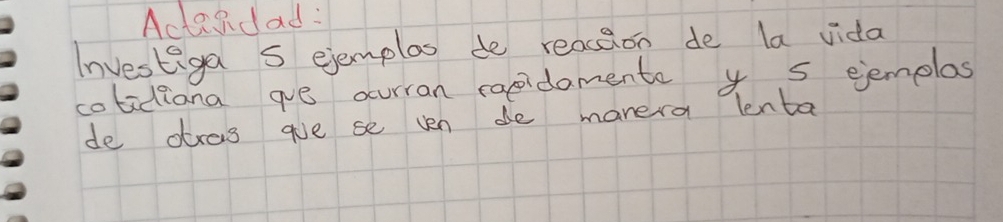 Actividad:
Investiga 5 ejemplos de reacción de la vida
cotidiana que ocurran rapidamente y 5 ejemplos
de otras que se ven de manera lenta